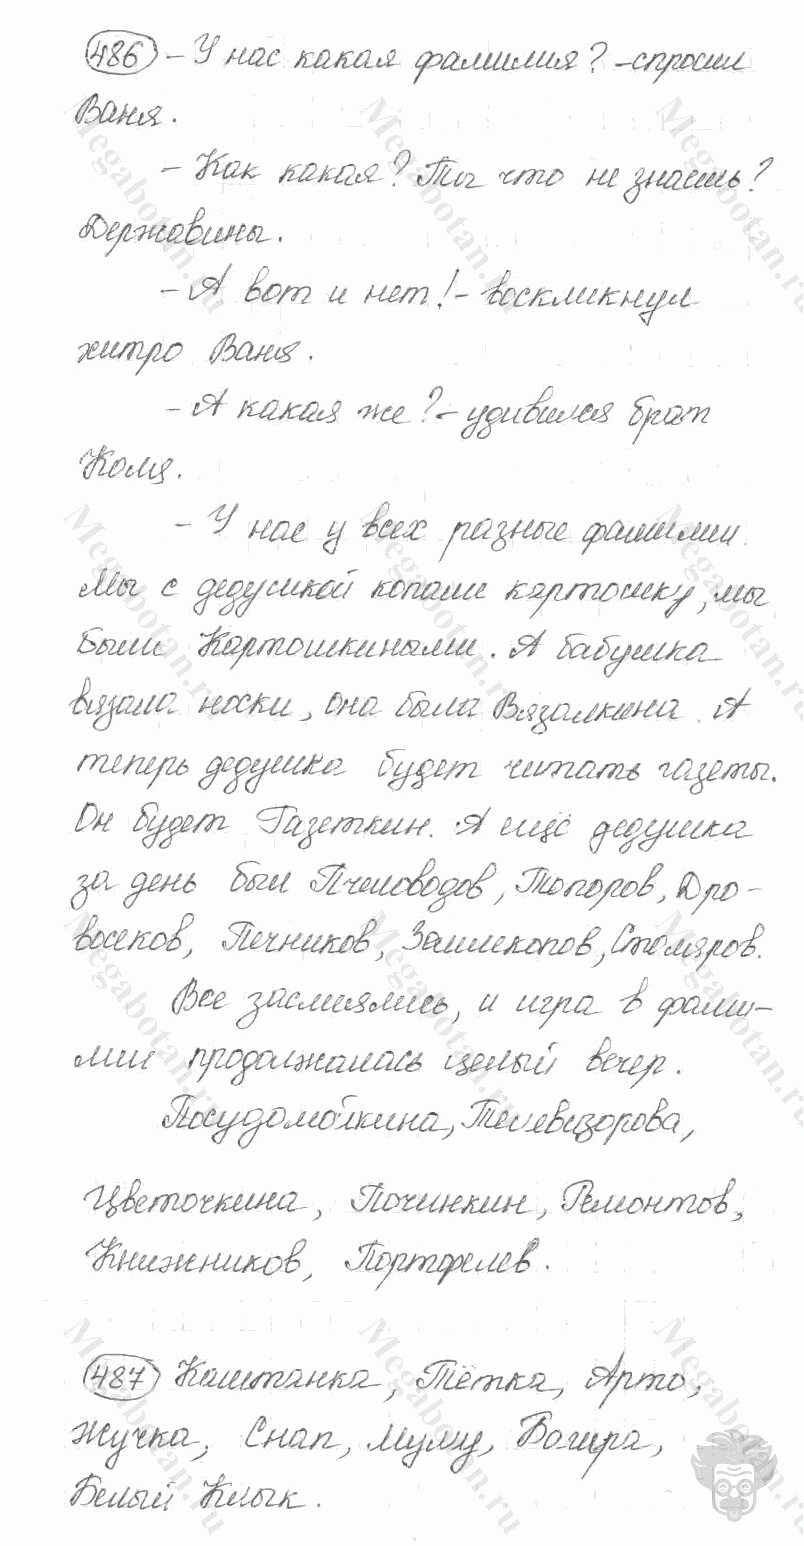 486 - У нас какая фамилия? - спросил
Ваня.
- Как какая? Ты что не знаешь?
Державины.
- А вот и нет! - воскликнул
хитро Ваня.
- А какая же? - удивился брат
Коля.
- У нас у всех разные фамилии.
Мы с дедушкой копали картошку, мы
были Картошкиными. А бабушка
вязала носки, она была Вязалкина. А
теперь дедушка будет читать газеты.
Он будет Газеткин. А ещё дедушка
за день был Пчеловодов, Топоров, Дро-
восеков, Печников, Землекопов, Столяров.
Все засмеялись, и игра в фами-
лии продолжалась целый вечер.
Посудомойкина, Телевизорова,
Цветочкина, Починкин, Ремонтов,
Книжников, Портфелев.
487 Каштанка, Тётка, Арто,
Жучка, Снап, Муму, Багира,
Белый Клык.
Megabotan.ru